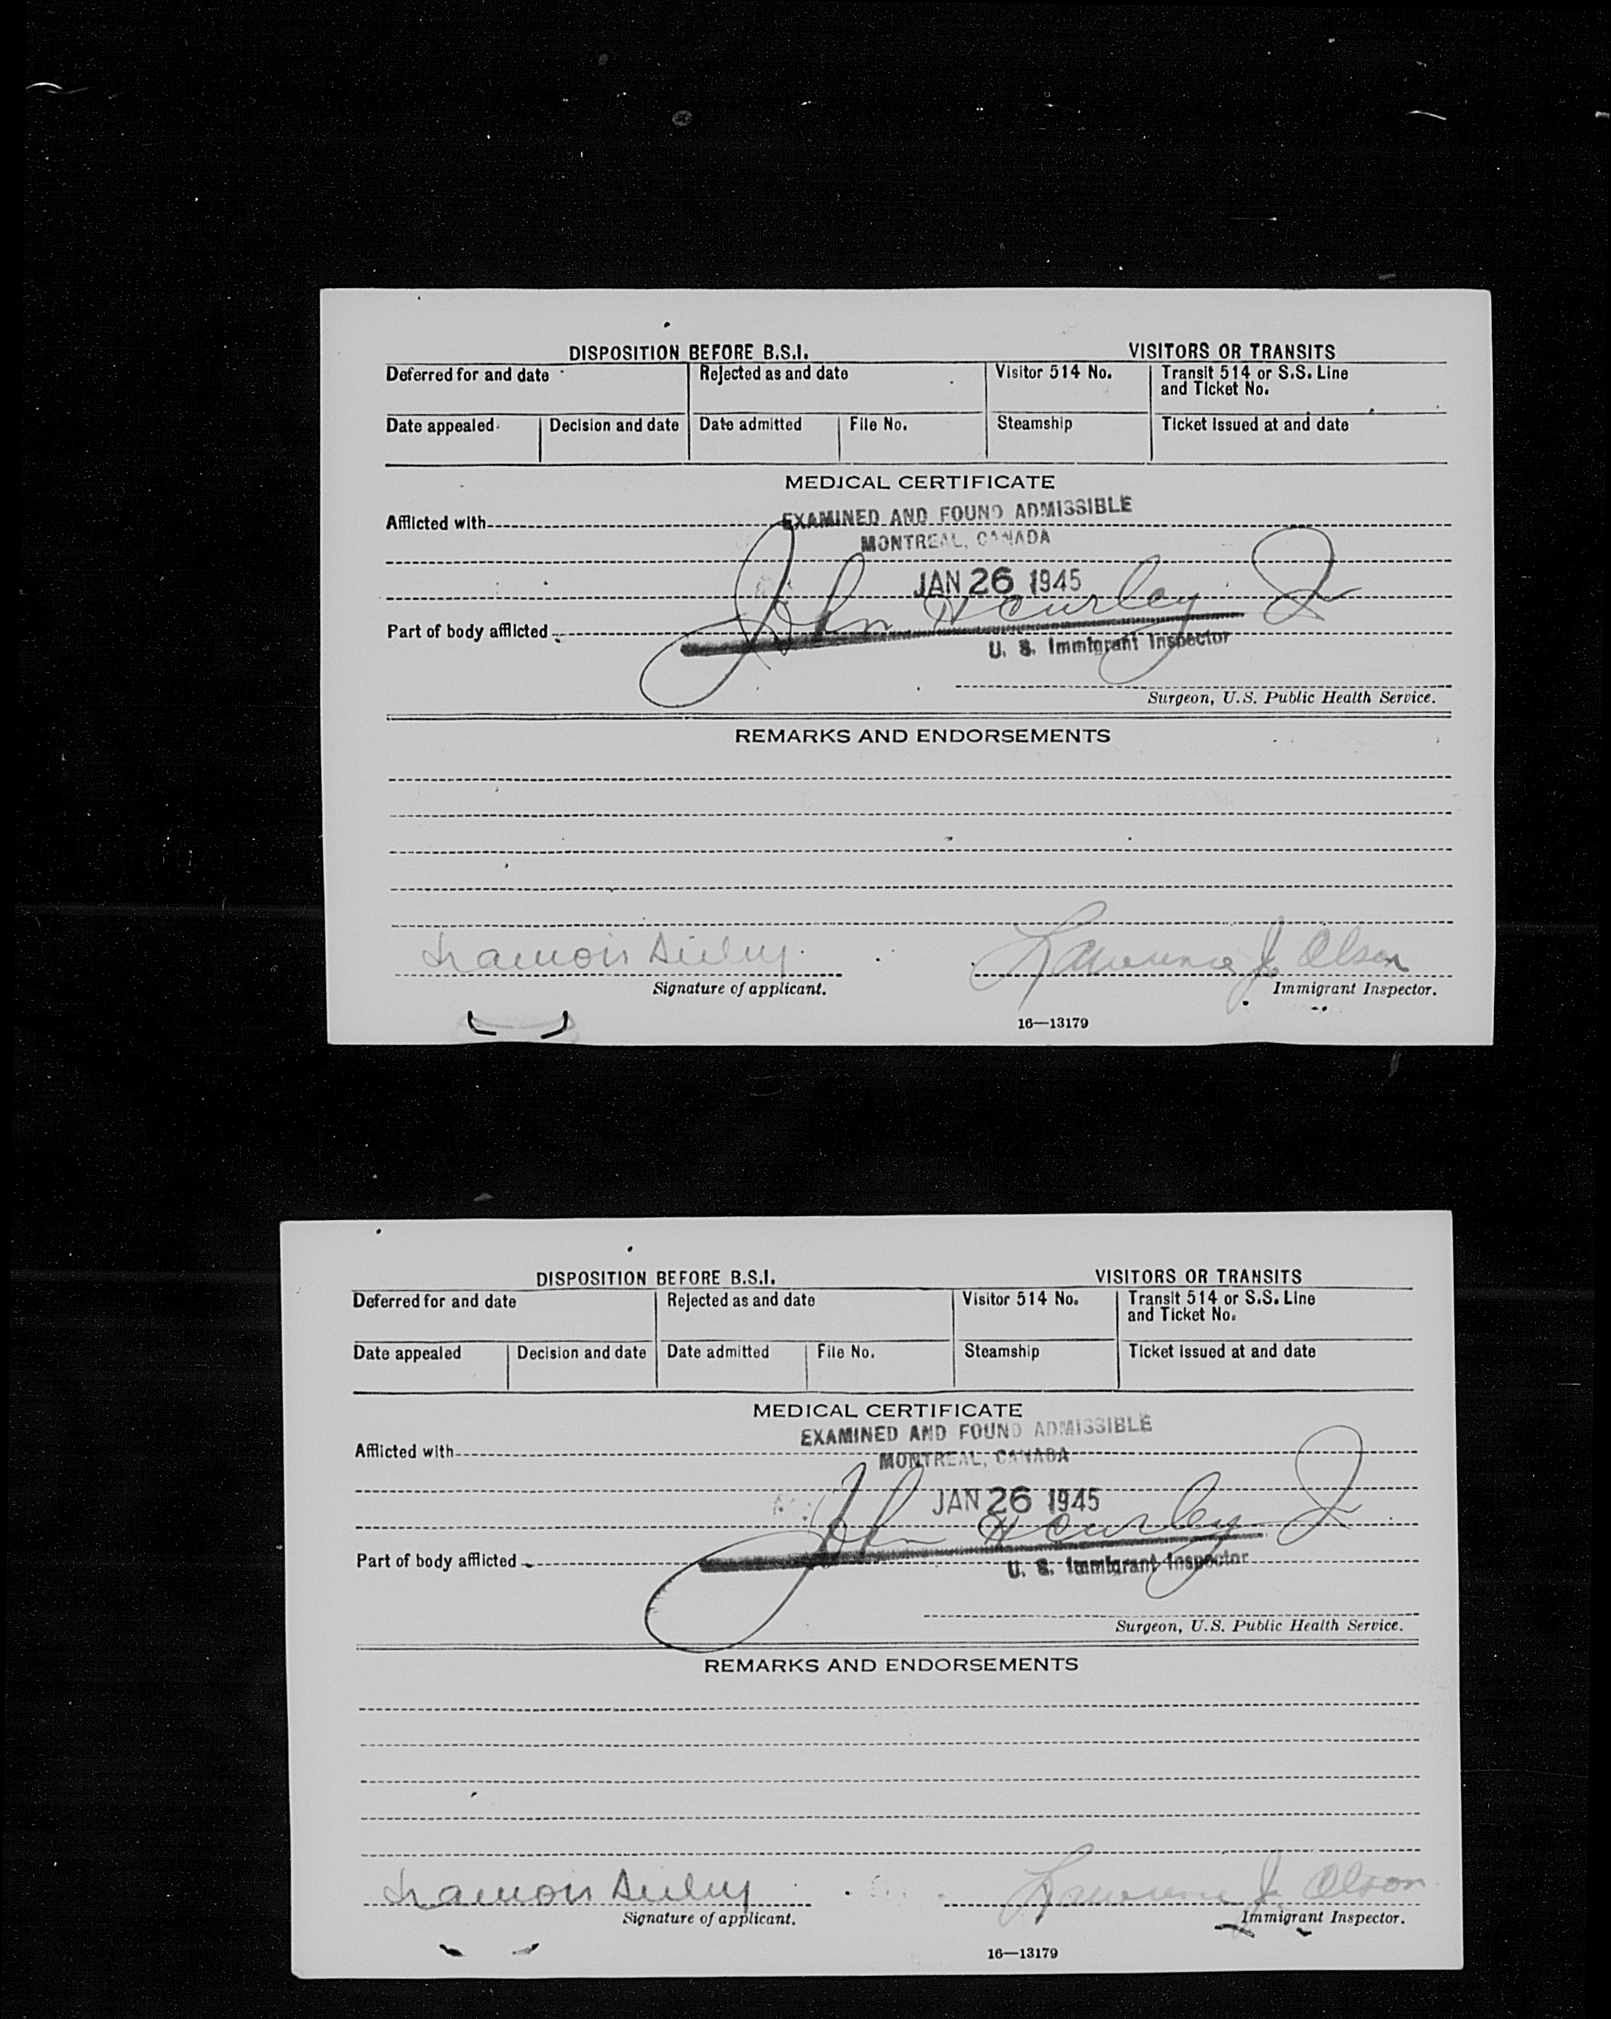 DISPOSITION BEFORE B.S.I. VISITORS OR TRANSITS
Deferred for and date Rejected as and date Visitor 514 No. Transit 514 or S.S. Line
and Ticket No.
Date appealed Decision and date Date admitted File No. Steamship Ticket issued at and date
MEDICAL CERTIFICATE
Afflicted with EXAMINED AND FOUND ADMISSIBLE
MONTREAL, CANADA
JAN 26 1945
John
Part of body afflicted
U. S. Immigrant Inspector
Surgeon, U.S. Public Health Service.
REMARKS AND ENDORSEMENTS
Lawrence J. Olson
Signature of applicant. Immigrant Inspector.
16—13179
DISPOSITION BEFORE B.S.I. VISITORS OR TRANSITS
Deferred for and date Rejected as and date Visitor 514 No. Transit 514 or S.S. Line
and Ticket No.
Date appealed Decision and date Date admitted File No. Steamship Ticket issued at and date
MEDICAL CERTIFICATE
EXAMINED AND FOUND ADMISSIBLE
Afflicted with MONTREAL, CANADA
JAN 26 1945
John
Part of body afflicted U. S. Immigrant Inspector
Surgeon, U.S. Public Health Service.
REMARKS AND ENDORSEMENTS
Lawrence J. Olson
Signature of applicant. Immigrant Inspector.
16—13179